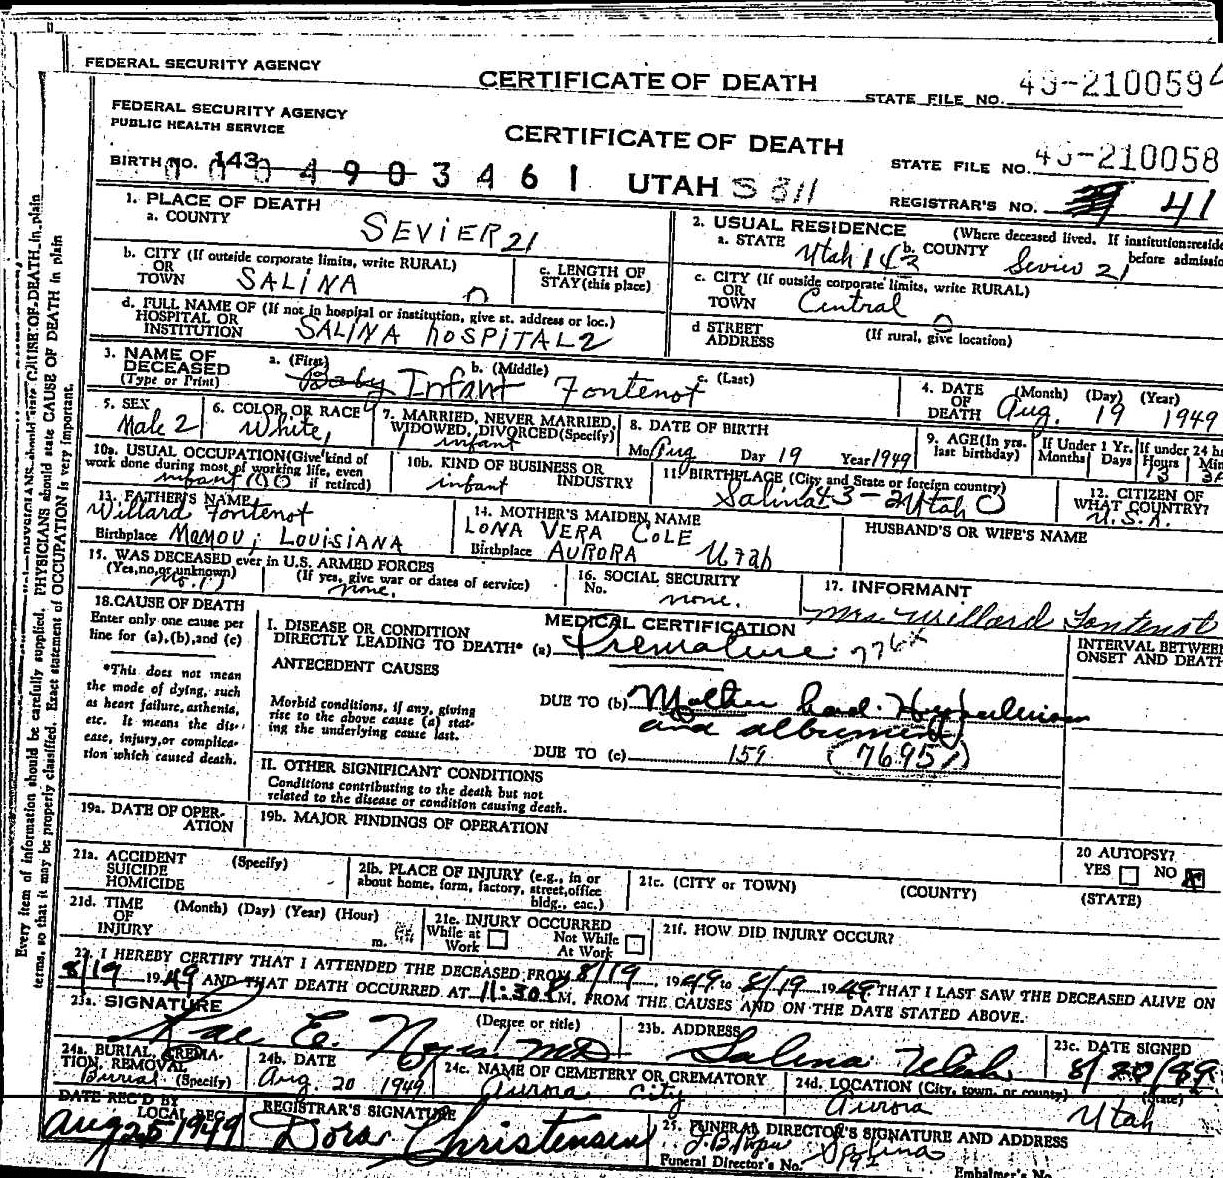 FEDERAL SECURITY AGENCY
CERTIFICATE OF DEATH
STATE FILE NO. 49-2100594
FEDERAL SECURITY AGENCY
PUBLIC HEALTH SERVICE
CERTIFICATE OF DEATH
STATE FILE NO. 49-210058
BIRTH NO. 143 4903461 UTAH S 311
REGISTRAR'S NO. 41
1. PLACE OF DEATH
a. COUNTY SEVIER 21
2. USUAL RESIDENCE (Where deceased lived. If institution: reside
before admissio
a. STATE Utah 143 b. COUNTY Sevier 21
b. CITY (If outside corporate limits, write RURAL)
OR
TOWN SALINA
c. LENGTH OF
STAY (this place)
c. CITY (If outside corporate limits, write RURAL)
OR
TOWN Central
d. FULL NAME OF (If not in hospital or institution, give st. address or loc.)
HOSPITAL OR
INSTITUTION SALINA HOSPITAL 2
d STREET
ADDRESS (If rural, give location)
3. NAME OF
DECEASED
(Type or Print)
a. (First) b. (Middle) c. (Last)
Baby Infant Fontenot
4. DATE
OF
DEATH (Month) (Day) (Year)
Aug. 19 1949
5. SEX
Male 2
6. COLOR OR RACE
White 1
7. MARRIED, NEVER MARRIED,
WIDOWED, DIVORCED (Specify)
1 infant
8. DATE OF BIRTH
Mo. Aug Day 19 Year 1949
9. AGE (In yrs.
last birthday)
If Under 1 Yr.
Months Days
If under 24 h
Hours Min
10a. USUAL OCCUPATION (Give kind of
work done during most of working life, even
if retired)
infant
10b. KIND OF BUSINESS OR
INDUSTRY
infant
11. BIRTHPLACE (City and State or foreign country)
Salina 43-2 Utah 0
12. CITIZEN OF
WHAT COUNTRY?
U.S.A.
13. FATHER'S NAME
Willard Fontenot
Birthplace MAMOU, LOUISIANA
14. MOTHER'S MAIDEN NAME
LONA VERA COLE
Birthplace AURORA Utah
HUSBAND'S OR WIFE'S NAME
15. WAS DECEASED ever in U.S. ARMED FORCES
(Yes, no, or unknown)
no.
(If yes, give war or dates of service)
none.
16. SOCIAL SECURITY
No.
none.
17. INFORMANT
Mrs. Willard Fontenot
18. CAUSE OF DEATH
Enter only one cause per
line for (a), (b), and (c)
*This does not mean
the mode of dying, such
as heart failure, asthenia,
etc. It means the dis-
ease, injury, or complica-
tion which caused death.
MEDICAL CERTIFICATION
I. DISEASE OR CONDITION
DIRECTLY LEADING TO DEATH* (a) Premature 776x
INTERVAL BETWEEN
ONSET AND DEATH
ANTECEDENT CAUSES
Morbid conditions, if any, giving
rise to the above cause (a) stat-
ing the underlying cause last.
DUE TO (b) Mother had
and
DUE TO (c) 159 (7695)
II. OTHER SIGNIFICANT CONDITIONS
Conditions contributing to the death but not
related to the disease or condition causing death.
19a. DATE OF OPER-
ATION
19b. MAJOR FINDINGS OF OPERATION
20 AUTOPSY?
YES NO
21a. ACCIDENT
SUICIDE
HOMICIDE
(Specify)
21b. PLACE OF INJURY (e.g., in or
about home, form, factory, street, office
bldg., eac.)
21c. (CITY or TOWN) (COUNTY) (STATE)
21d. TIME
OF
INJURY
(Month) (Day) (Year) (Hour)
m.
21e. INJURY OCCURRED
While at
Work
Not While
At Work
21f. HOW DID INJURY OCCUR?
22. I HEREBY CERTIFY THAT I ATTENDED THE DECEASED FROM 8/19, 1949 to 8/19 1949 THAT I LAST SAW THE DECEASED ALIVE ON
8/19 1949 AND THAT DEATH OCCURRED AT 11:30 M, FROM THE CAUSES AND ON THE DATE STATED ABOVE.
23a. SIGNATURE (Degree or title)
Rae E. Noyes MD
23b. ADDRESS
Salina Utah
23c. DATE SIGNED
8/20/49
24a. BURIAL, CREMA-
TION, REMOVAL
(Specify)
Burial
24b. DATE
Aug. 20 1949
24c. NAME OF CEMETERY OR CREMATORY
Aurora City
24d. LOCATION (City, town, or county) (State)
Aurora Utah
DATE REC'D BY
LOCAL REG.
Aug 25 1949
REGISTRAR'S SIGNATURE
Dora Christensen
25. FUNERAL DIRECTOR'S SIGNATURE AND ADDRESS
Salina
Funeral Director's No.
Embalmer's No.
Every item of information should be carefully supplied. PHYSICIANS should state CAUSE OF DEATH in plain
terms, so that it may be properly classified. Exact statement of OCCUPATION is very important.